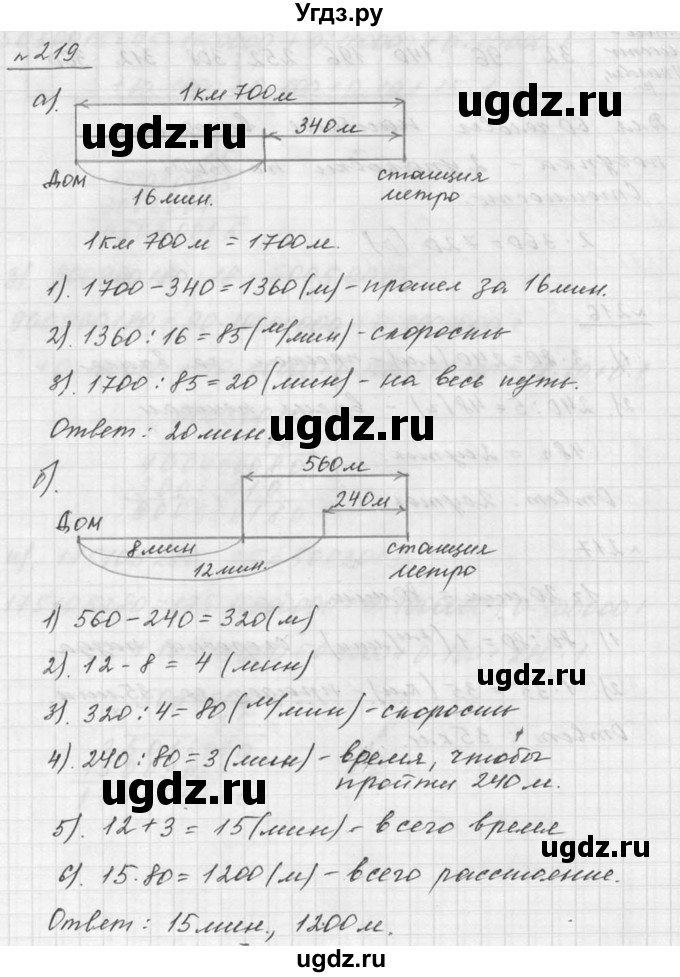 Угдз.ру
№219
а).
1км 700м
340м
Дом
станция
метро
16мин.
1км 700м = 1700м.
1). 1700-340=1360(м)-прошел за 16мин.
2). 1360:16=85(м/мин)-скорость
3). 1700:85=20(мин)-на весь путь.
Ответ: 20мин.
б).
560м
240м
Дом
8мин
станция
метро
12мин.
1) 560-240=320(м)
2). 12-8=4(мин)
3). 320:4=80(м/мин)-скорость
4). 240:80=3(мин)-время, чтобы
пройти 240м.
5). 12+3=15(мин)-всего время
6). 15·80=1200(м)-всего расстояние.
Ответ: 15мин., 1200м.
ugdz.ru
ugdz.ru
ugdz.ru
ugdz.ru
ugdz.ru
ugdz.ru
ugdz.ru
ugdz.ru
ugdz.ru